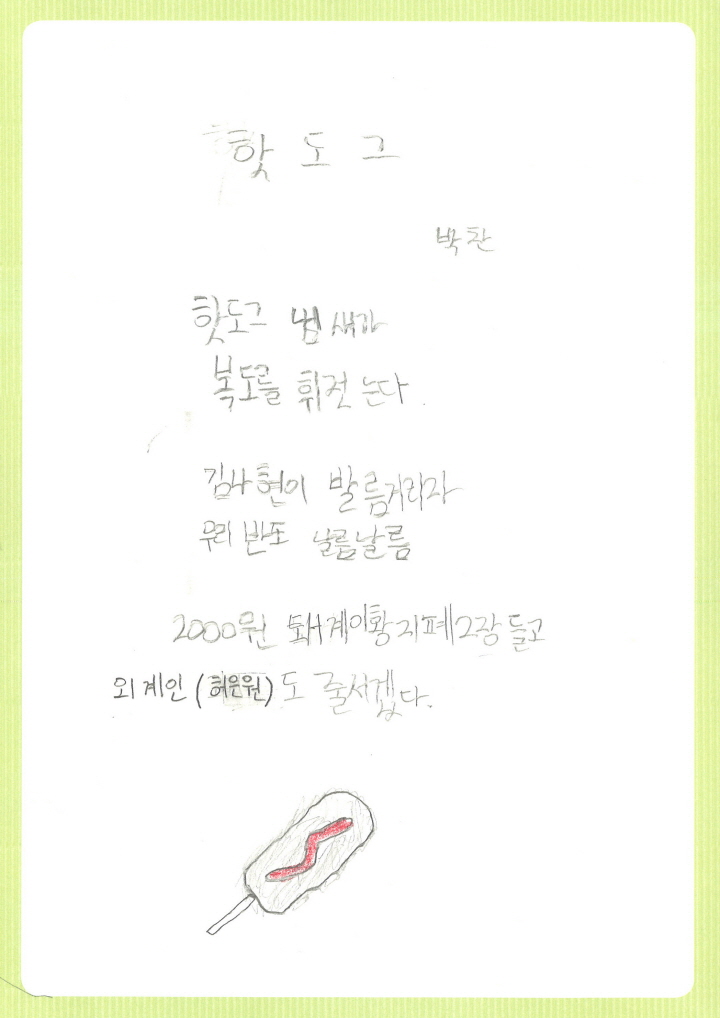 핫도그
박찬
핫도그 냄새가
복도를 휘젓는다.
김사현이 발름거리자
우리 반도 날름날름
2000원 퇴계이황 지폐2장 들고
외계인(허은원)도 줄서겠다.